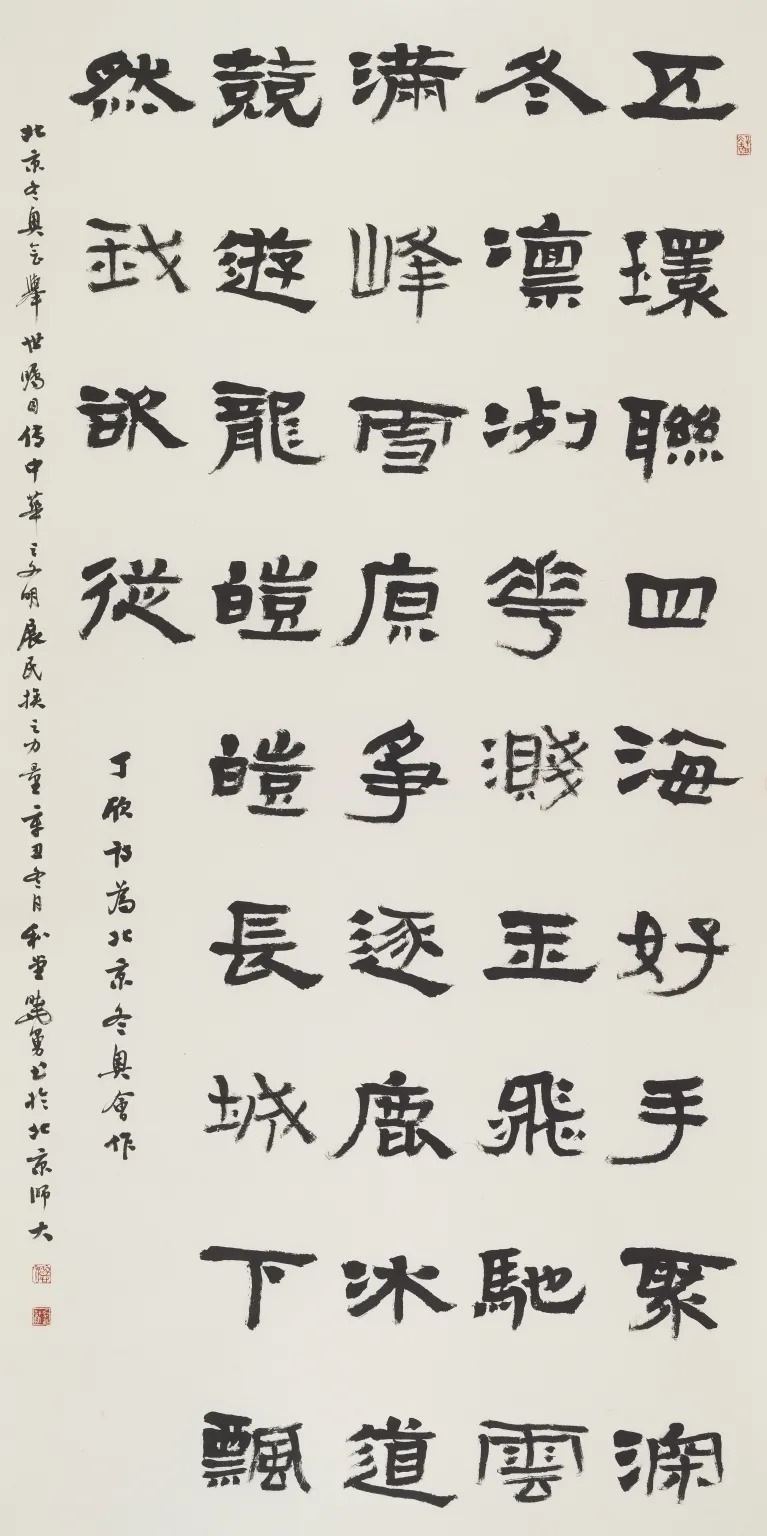 五環聯四海好手聚深
冬凛冽花濺玉飛馳雲
滿峰雪原争逐鹿冰道
競遊龍皚皚長城下飄
然我欲從
丁欣詩為北京冬奥會作
北京冬奥會舉世矚目傳中華之文明展民族之力量辛丑冬月利堂曉勇書於北京師大